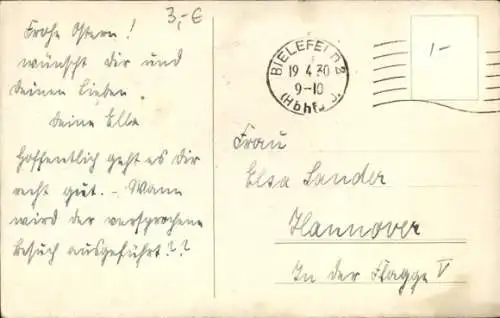 3,-€
Frohe Ostern!
wünscht dir und
deinen Lieben.
Deine Elle
Hoffentlich geht es dir
recht gut. - Wann
wird der versprochene
Besuch ausgeführt??
BIELEFELD 2
19.4.30
9-10
(Hbhf)
1-
Frau
Elsa Sander
Hannover
In der Flagge V